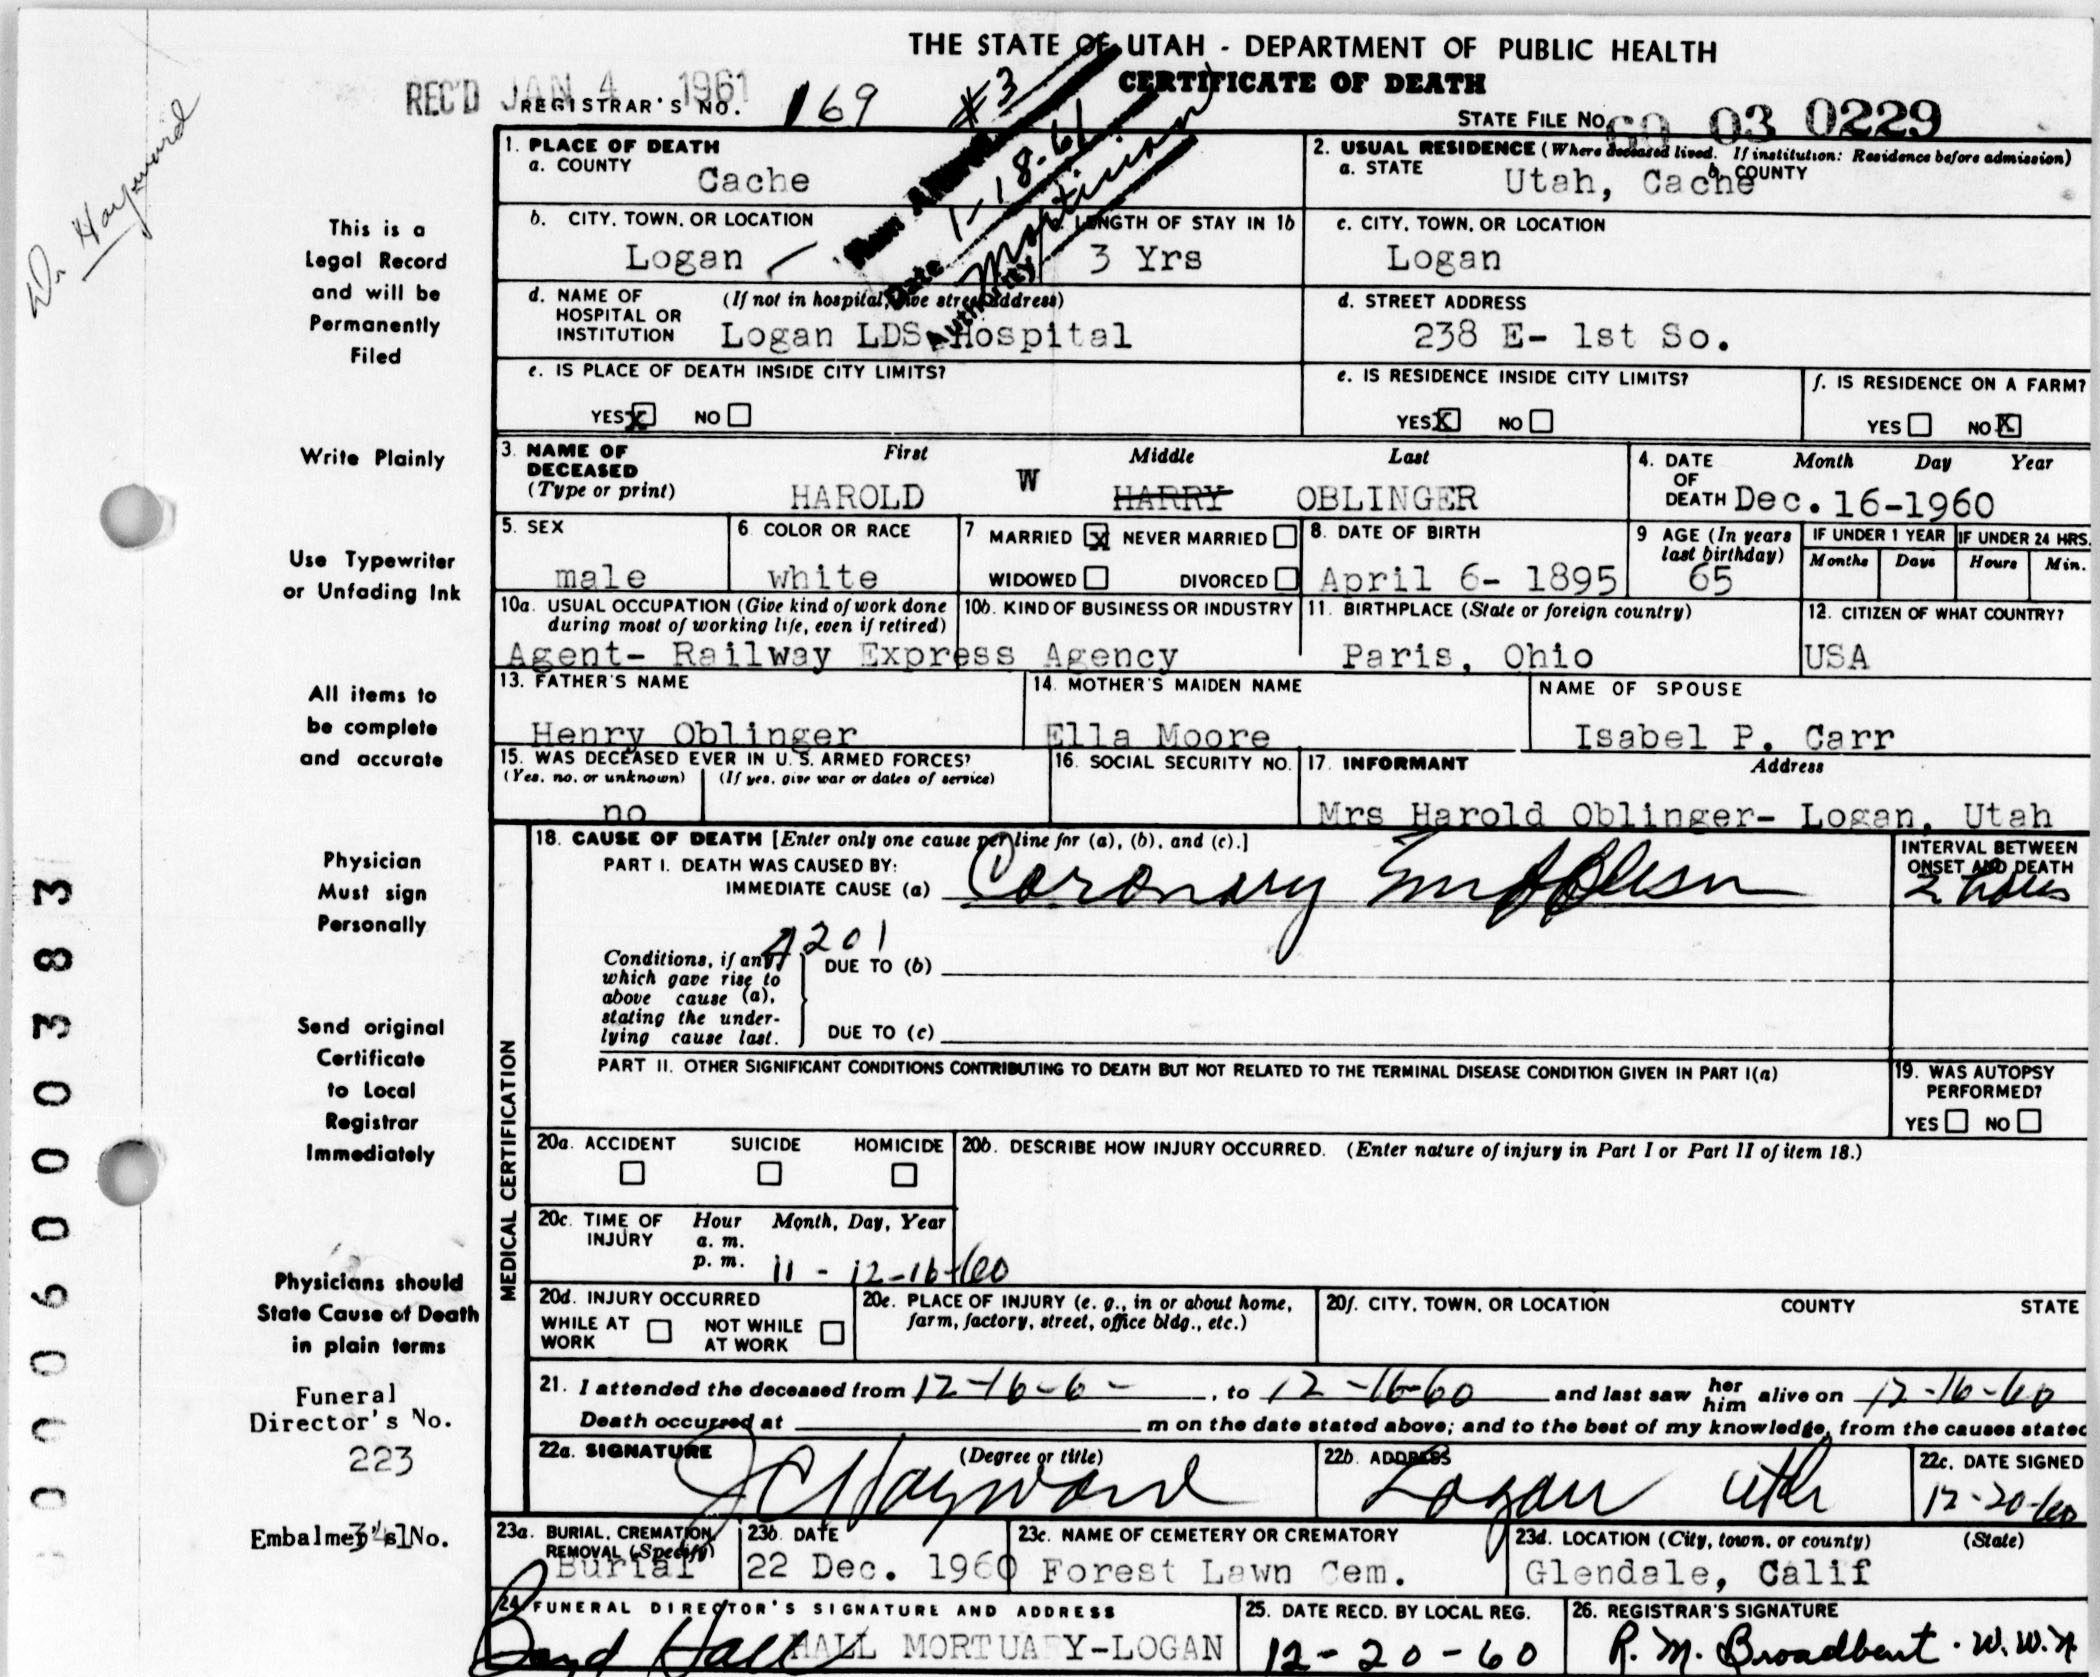 THE STATE OF UTAH - DEPARTMENT OF PUBLIC HEALTH
CERTIFICATE OF DEATH
REC'D JAN 4 1961
REGISTRAR'S NO. 169
#3
STATE FILE NO. 60 03 0229
Dr Hayward
Item Amended
Date 1-18-61
Authority Mortician
1. PLACE OF DEATH
a. COUNTY
Cache
2. USUAL RESIDENCE (Where deceased lived. If institution: Residence before admission)
a. STATE b. COUNTY
Utah, Cache
b. CITY, TOWN, OR LOCATION
Logan
c. LENGTH OF STAY IN 1b
3 Yrs
c. CITY, TOWN, OR LOCATION
Logan
d. NAME OF HOSPITAL OR INSTITUTION (If not in hospital, give street address)
Logan LDS Hospital
d. STREET ADDRESS
238 E- 1st So.
e. IS PLACE OF DEATH INSIDE CITY LIMITS?
YES X NO
e. IS RESIDENCE INSIDE CITY LIMITS?
YES X NO
f. IS RESIDENCE ON A FARM?
YES NO X
3. NAME OF DECEASED (Type or print)
First Middle Last
HAROLD W HARRY OBLINGER
4. DATE OF DEATH Month Day Year
Dec. 16-1960
5. SEX
male
6. COLOR OR RACE
white
7 MARRIED X NEVER MARRIED
WIDOWED DIVORCED
8. DATE OF BIRTH
April 6- 1895
9 AGE (In years last birthday)
65
IF UNDER 1 YEAR IF UNDER 24 HRS.
Months Days Hours Min.
10a. USUAL OCCUPATION (Give kind of work done during most of working life, even if retired)
10b. KIND OF BUSINESS OR INDUSTRY
Agent- Railway Express Agency
11. BIRTHPLACE (State or foreign country)
Paris, Ohio
12. CITIZEN OF WHAT COUNTRY?
USA
13. FATHER'S NAME
Henry Oblinger
14. MOTHER'S MAIDEN NAME
Ella Moore
NAME OF SPOUSE
Isabel P. Carr
15. WAS DECEASED EVER IN U. S. ARMED FORCES?
(Yes, no, or unknown) (If yes, give war or dates of service)
no
16. SOCIAL SECURITY NO.
17. INFORMANT Address
Mrs Harold Oblinger- Logan, Utah
MEDICAL CERTIFICATION
18. CAUSE OF DEATH [Enter only one cause per line for (a), (b), and (c).]
PART I. DEATH WAS CAUSED BY:
IMMEDIATE CAUSE (a) Coronary
INTERVAL BETWEEN ONSET AND DEATH
2
4201
Conditions, if any, which gave rise to above cause (a), stating the underlying cause last.
DUE TO (b)
DUE TO (c)
PART II. OTHER SIGNIFICANT CONDITIONS CONTRIBUTING TO DEATH BUT NOT RELATED TO THE TERMINAL DISEASE CONDITION GIVEN IN PART I(a)
19. WAS AUTOPSY PERFORMED?
YES NO
20a. ACCIDENT SUICIDE HOMICIDE
20b. DESCRIBE HOW INJURY OCCURRED. (Enter nature of injury in Part I or Part II of item 18.)
20c. TIME OF INJURY Hour Month, Day, Year
a. m.
p. m. 11 - 12-16-60
20d. INJURY OCCURRED
WHILE AT WORK NOT WHILE AT WORK
20e. PLACE OF INJURY (e. g., in or about home, farm, factory, street, office bldg., etc.)
20f. CITY, TOWN, OR LOCATION COUNTY STATE
21. I attended the deceased from 12-16-6-, to 12-16-60 and last saw her him alive on 12-16-60
Death occurred at m on the date stated above; and to the best of my knowledge, from the causes stated
22a. SIGNATURE (Degree or title)
J C Hayward
22b. ADDRESS
Logan Utah
22c. DATE SIGNED
12-20-60
23a. BURIAL, CREMATION, REMOVAL (Specify)
Burial
23b. DATE
22 Dec. 1960
23c. NAME OF CEMETERY OR CREMATORY
Forest Lawn Cem.
23d. LOCATION (City, town, or county) (State)
Glendale, Calif
24. FUNERAL DIRECTOR'S SIGNATURE AND ADDRESS
Boyd Hall HALL MORTUARY-LOGAN
25. DATE RECD. BY LOCAL REG.
12-20-60
26. REGISTRAR'S SIGNATURE
R. M. Broadbent. W.W.N
This is a
Legal Record
and will be
Permanently
Filed
Write Plainly
Use Typewriter
or Unfading Ink
All items to
be complete
and accurate
Physician
Must sign
Personally
Send original
Certificate
to Local
Registrar
Immediately
Physicians should
State Cause of Death
in plain terms
Funeral
Director's No.
223
Embalmer's No.
0006000383